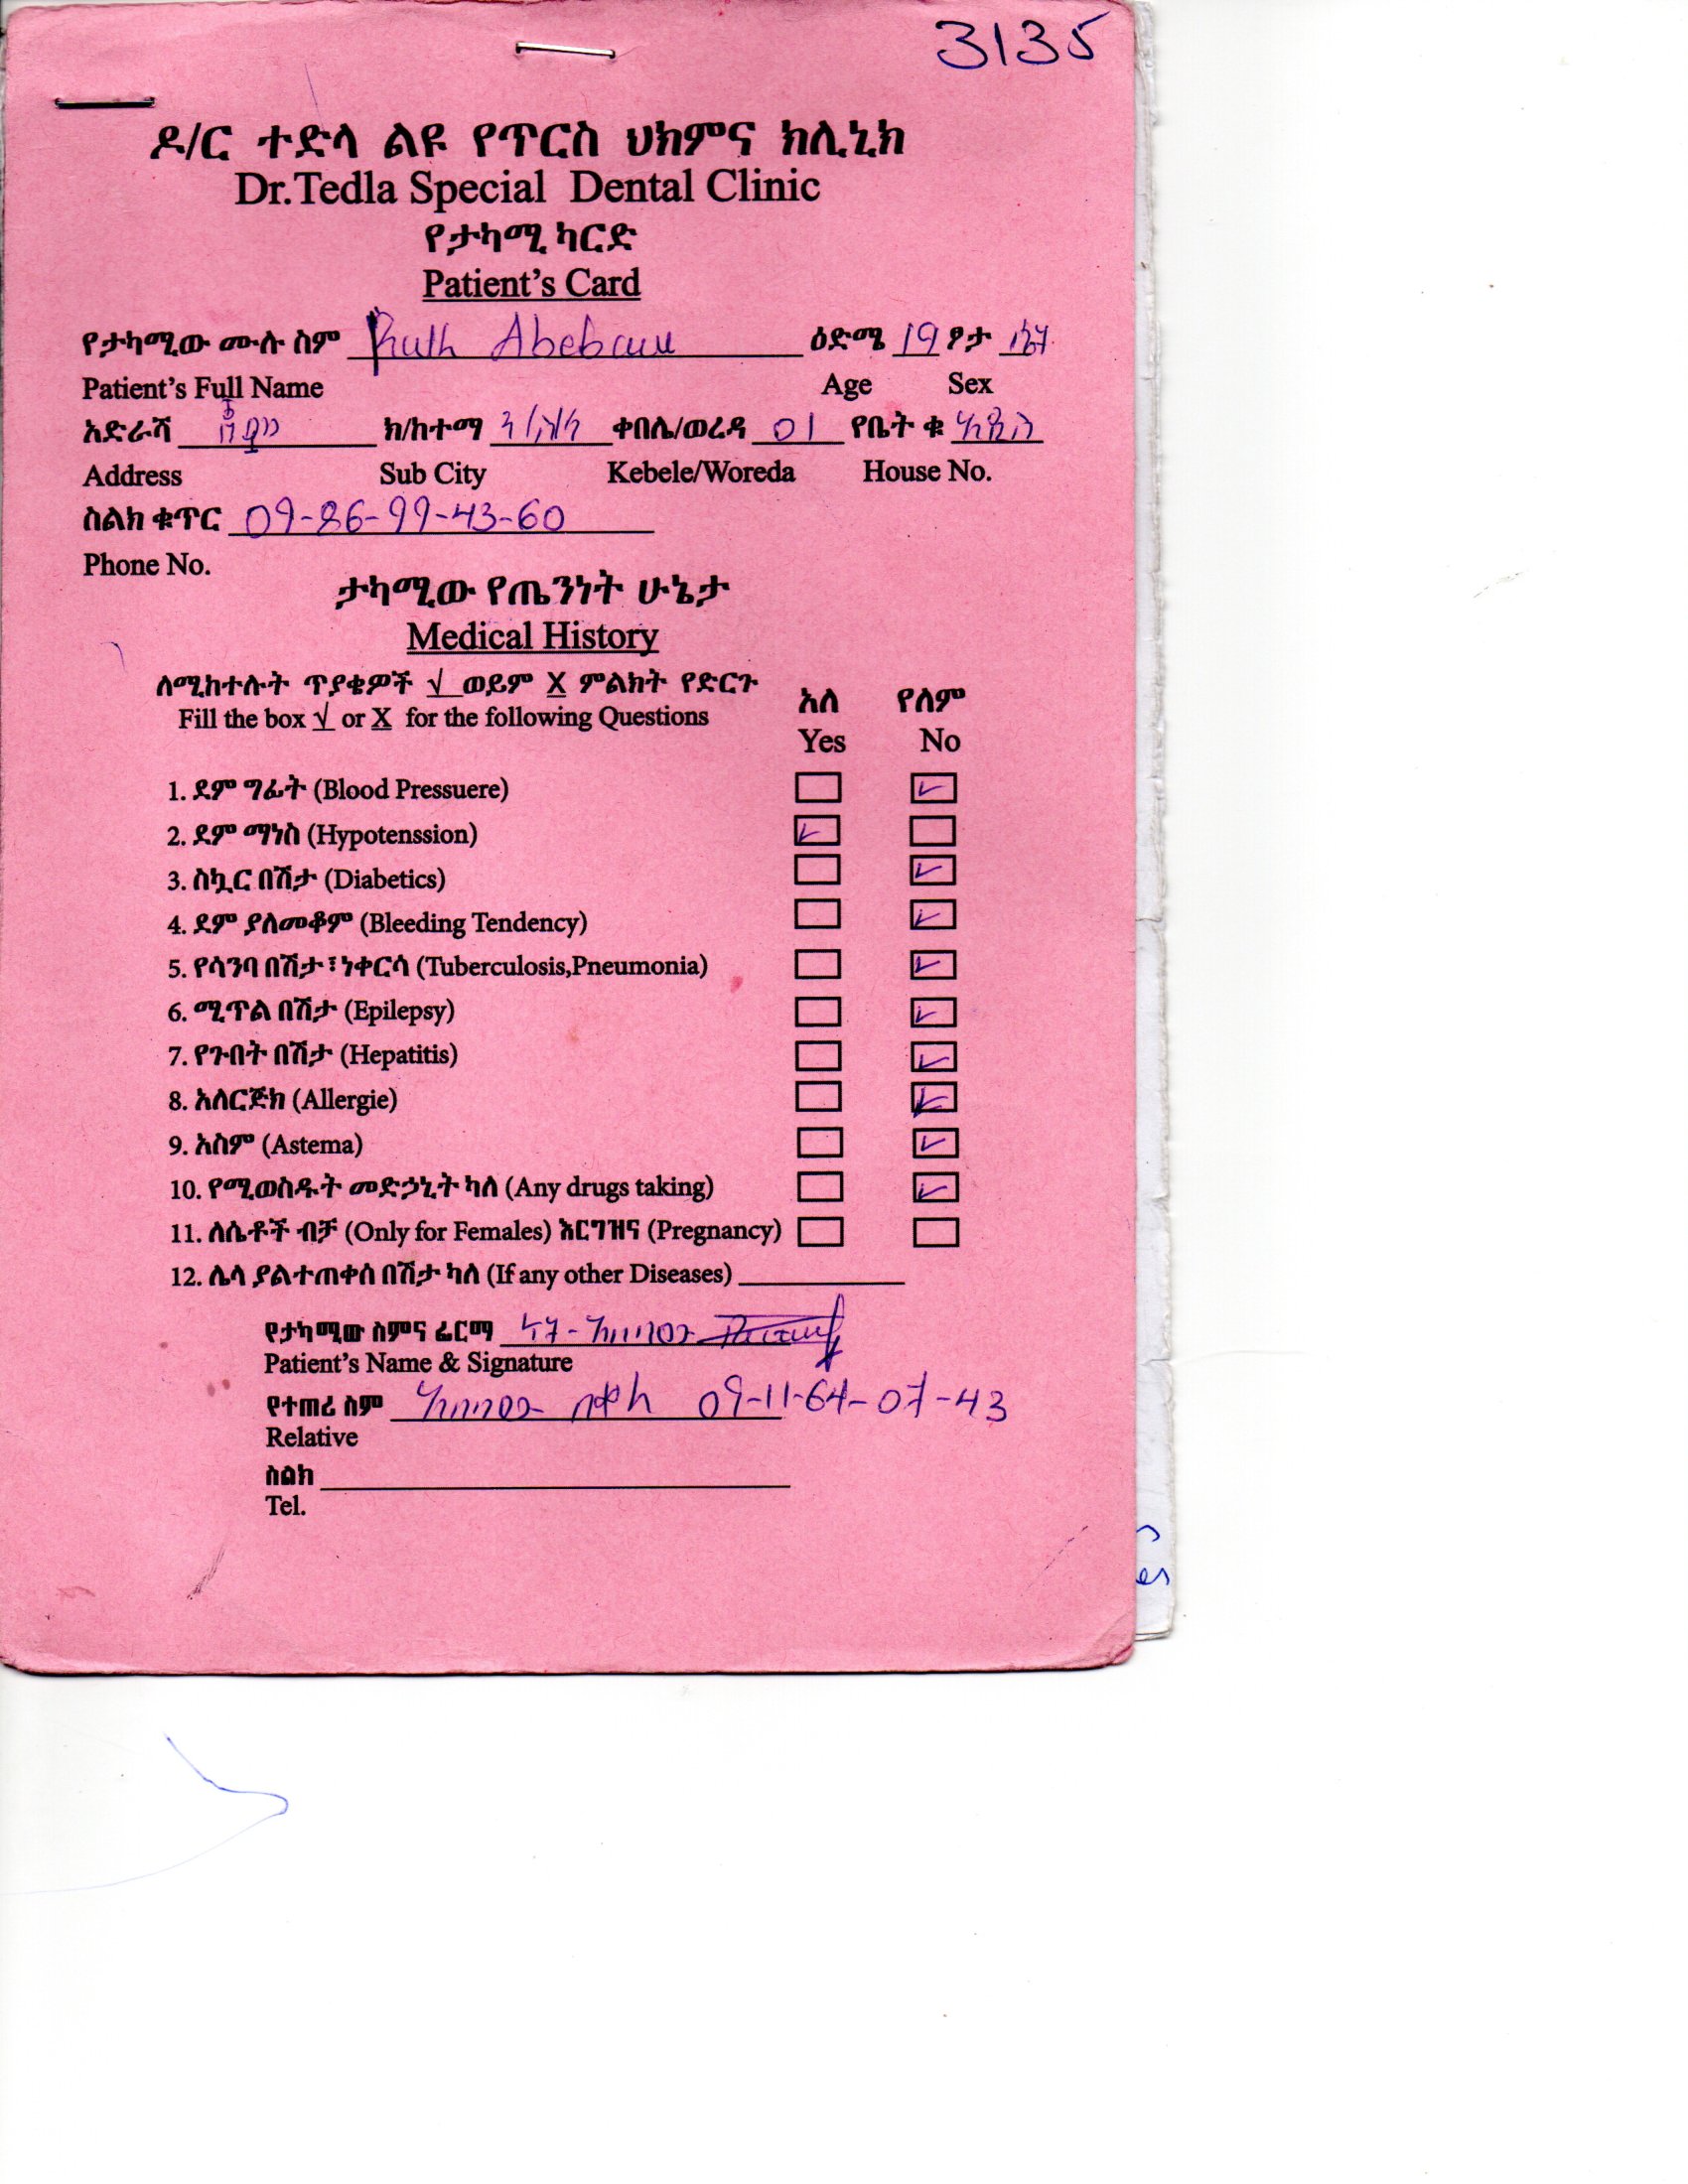 3135
ዶ/ር ተድላ ልዩ የጥርስ ህክምና ክሊኒክ
Dr.Tedla Special Dental Clinic
የታካሚ ካርድ
Patient's Card
የታካሚው ሙሉ ስም Ruth Abebaw ዕድሜ 19 ፆታ ሴት
Patient's Full Name Age Sex
አድራሻ ክ/ከተማ ቀበሌ/ወረዳ 01 የቤት ቁ አዲስ
Address Sub City Kebele/Woreda House No.
ስልክ ቁጥር 09-86-99-43-60
Phone No.
ታካሚው የጤንነት ሁኔታ
Medical History
ለሚከተሉት ጥያቄዎች √ ወይም X ምልክት የድርጉ
Fill the box √ or X for the following Questions
አለ የለም
Yes No
1. ደም ግፊት (Blood Pressuere) ✓
2. ደም ማነስ (Hypotenssion) ✓
3. ስኳር በሽታ (Diabetics) ✓
4. ደም ያለመቆም (Bleeding Tendency) ✓
5. የሳንባ በሽታ፣ነቀርሳ (Tuberculosis,Pneumonia) ✓
6. ሚጥል በሽታ (Epilepsy) ✓
7. የጉበት በሽታ (Hepatitis) ✓
8. አለርጅክ (Allergie) ✓
9. አስም (Astema) ✓
10. የሚወስዱት መድኃኒት ካለ (Any drugs taking) ✓
11. ለሴቶች ብቻ (Only for Females) እርግዝና (Pregnancy)
12. ሌላ ያልተጠቀሰ በሽታ ካለ (If any other Diseases)
የታካሚው ስምና ፊርማ ሩት አበባው
Patient's Name & Signature
የተጠሪ ስም አበባው በቀለ 09-11-64-07-43
Relative
ስልክ
Tel.